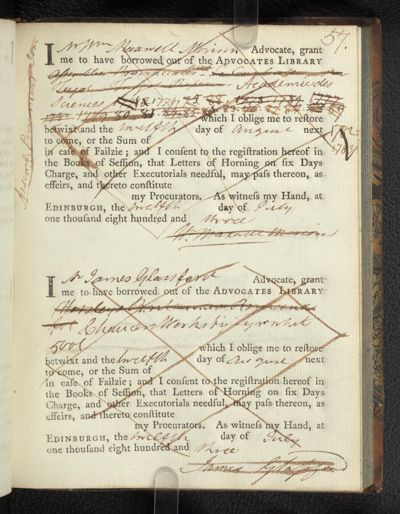 57.
I Mr Wm Maxwell Morison Advocate, grant
me to have borrowed out of the ADVOCATES LIBRARY
Academie des
Sciences
which I oblige me to restore
betwixt and the twelfth day of August next
to come, or the Sum of
in case of Failzie; and I consent to the registration hereof in
the Books of Session, that Letters of Horning on six Days
Charge, and other Executorials needful, may pass thereon, as
effeirs, and thereto constitute
my Procurators. As witness my Hand, at
EDINBURGH, the twelfth day of July
one thousand eight hundred and three
W. Maxwell Morison
I Mr James Glassford Advocate, grant
me to have borrowed out of the ADVOCATES LIBRARY
Chaucers Works by Tyrwhit
which I oblige me to restore
betwixt and the twelfth day of August next
to come, or the Sum of
in case of Failzie; and I consent to the registration hereof in
the Books of Session, that Letters of Horning on six Days
Charge, and other Executorials needful, may pass thereon, as
effeirs, and thereto constitute
my Procurators. As witness my Hand, at
EDINBURGH, the twelfth day of July
one thousand eight hundred and three
James Glassford